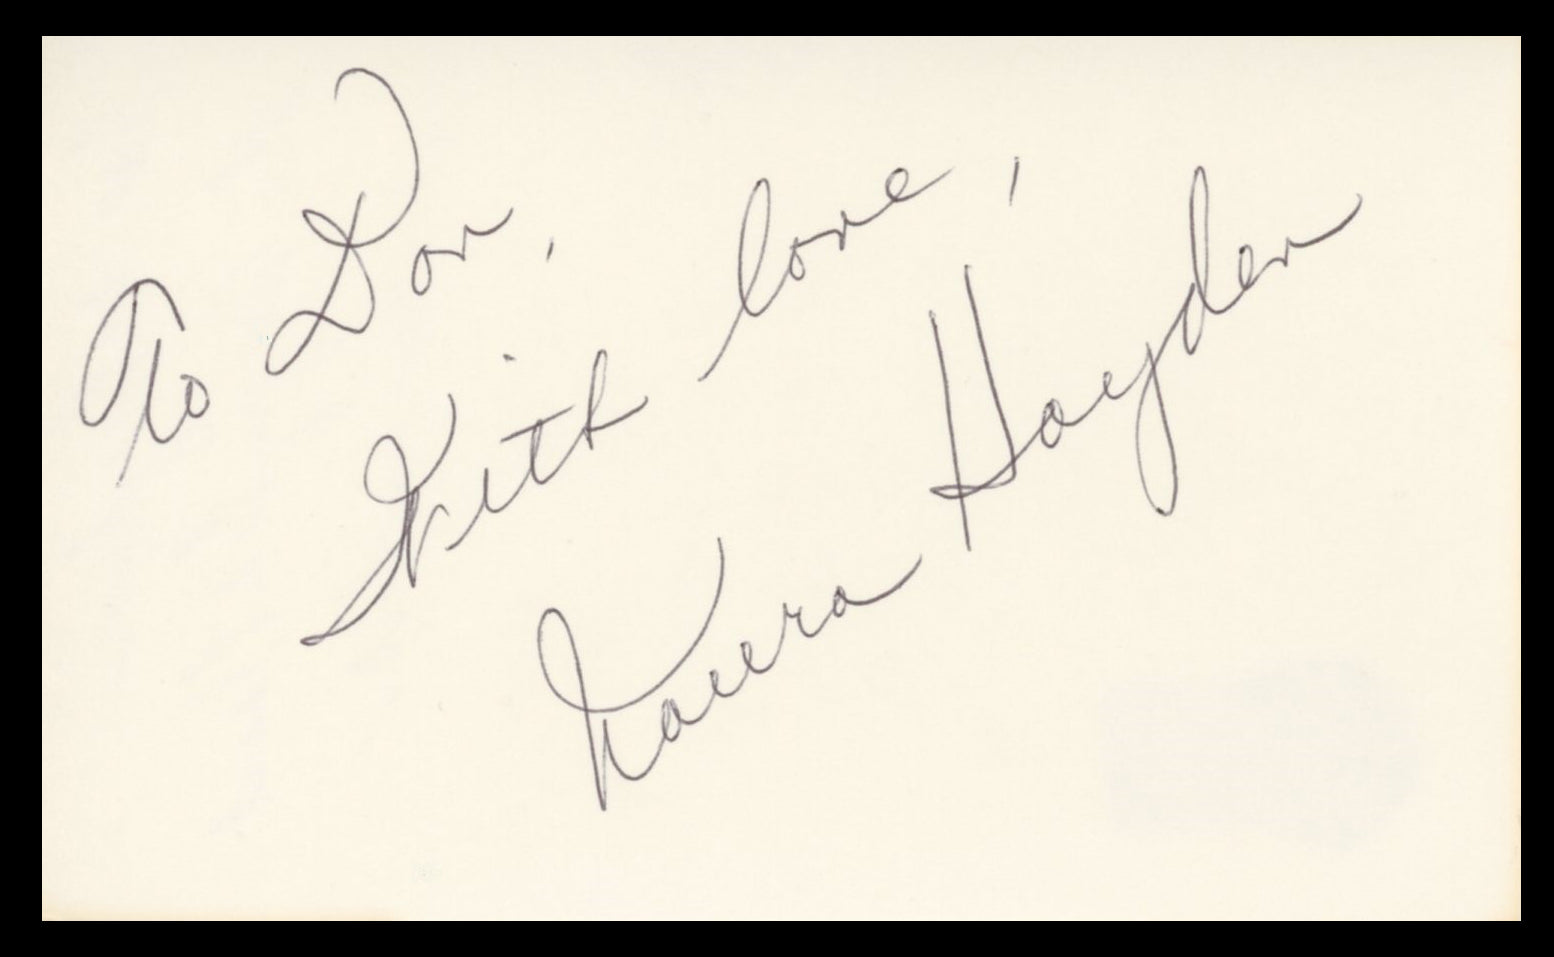 To Don,
With love,
Naura Hayden